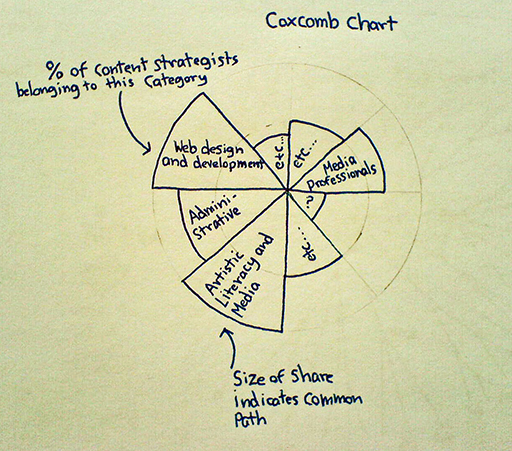 Coxcomb Chart
% of content strategists
belonging to this Category
Web design
and development
etc...
etc...
Media
Professionals
?
Admini-
strative
etc....
Artistic
Literacy and
Media
Size of Share
indicates Common
Path